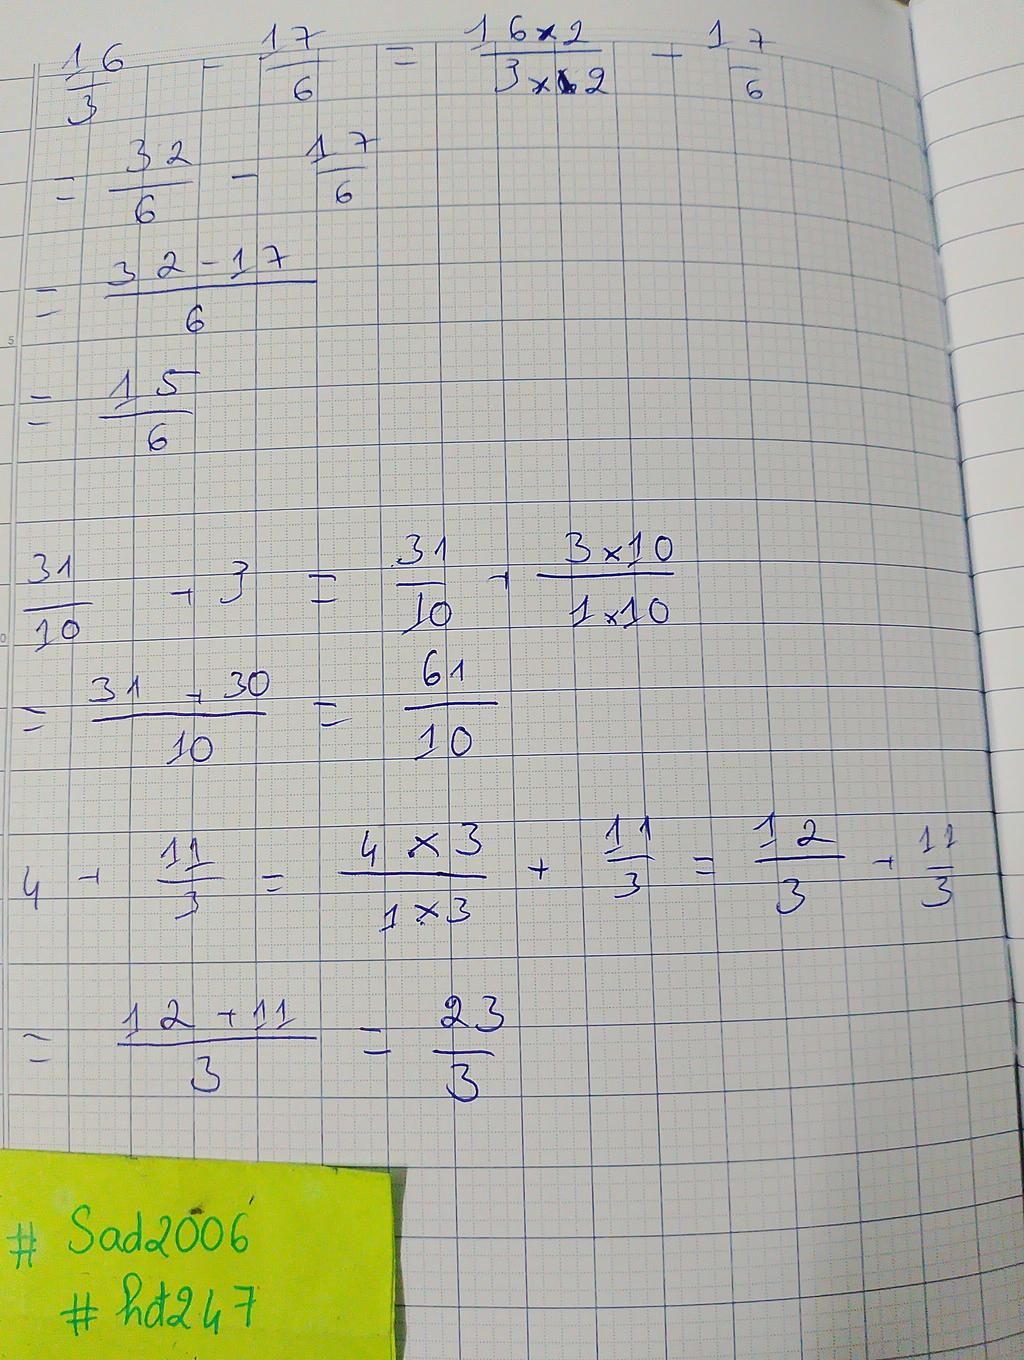 16/3 - 17/6 = 16×2/3×2 - 17/6
= 32/6 - 17/6
= 32-17/6
= 15/6
31/10 + 3 = 31/10 + 3×10/1×10
= 31 + 30/10 = 61/10
4 + 11/3 = 4×3/1×3 + 11/3 = 12/3 + 11/3
= 12+11/3 = 23/3
# Sad2006
# hd247